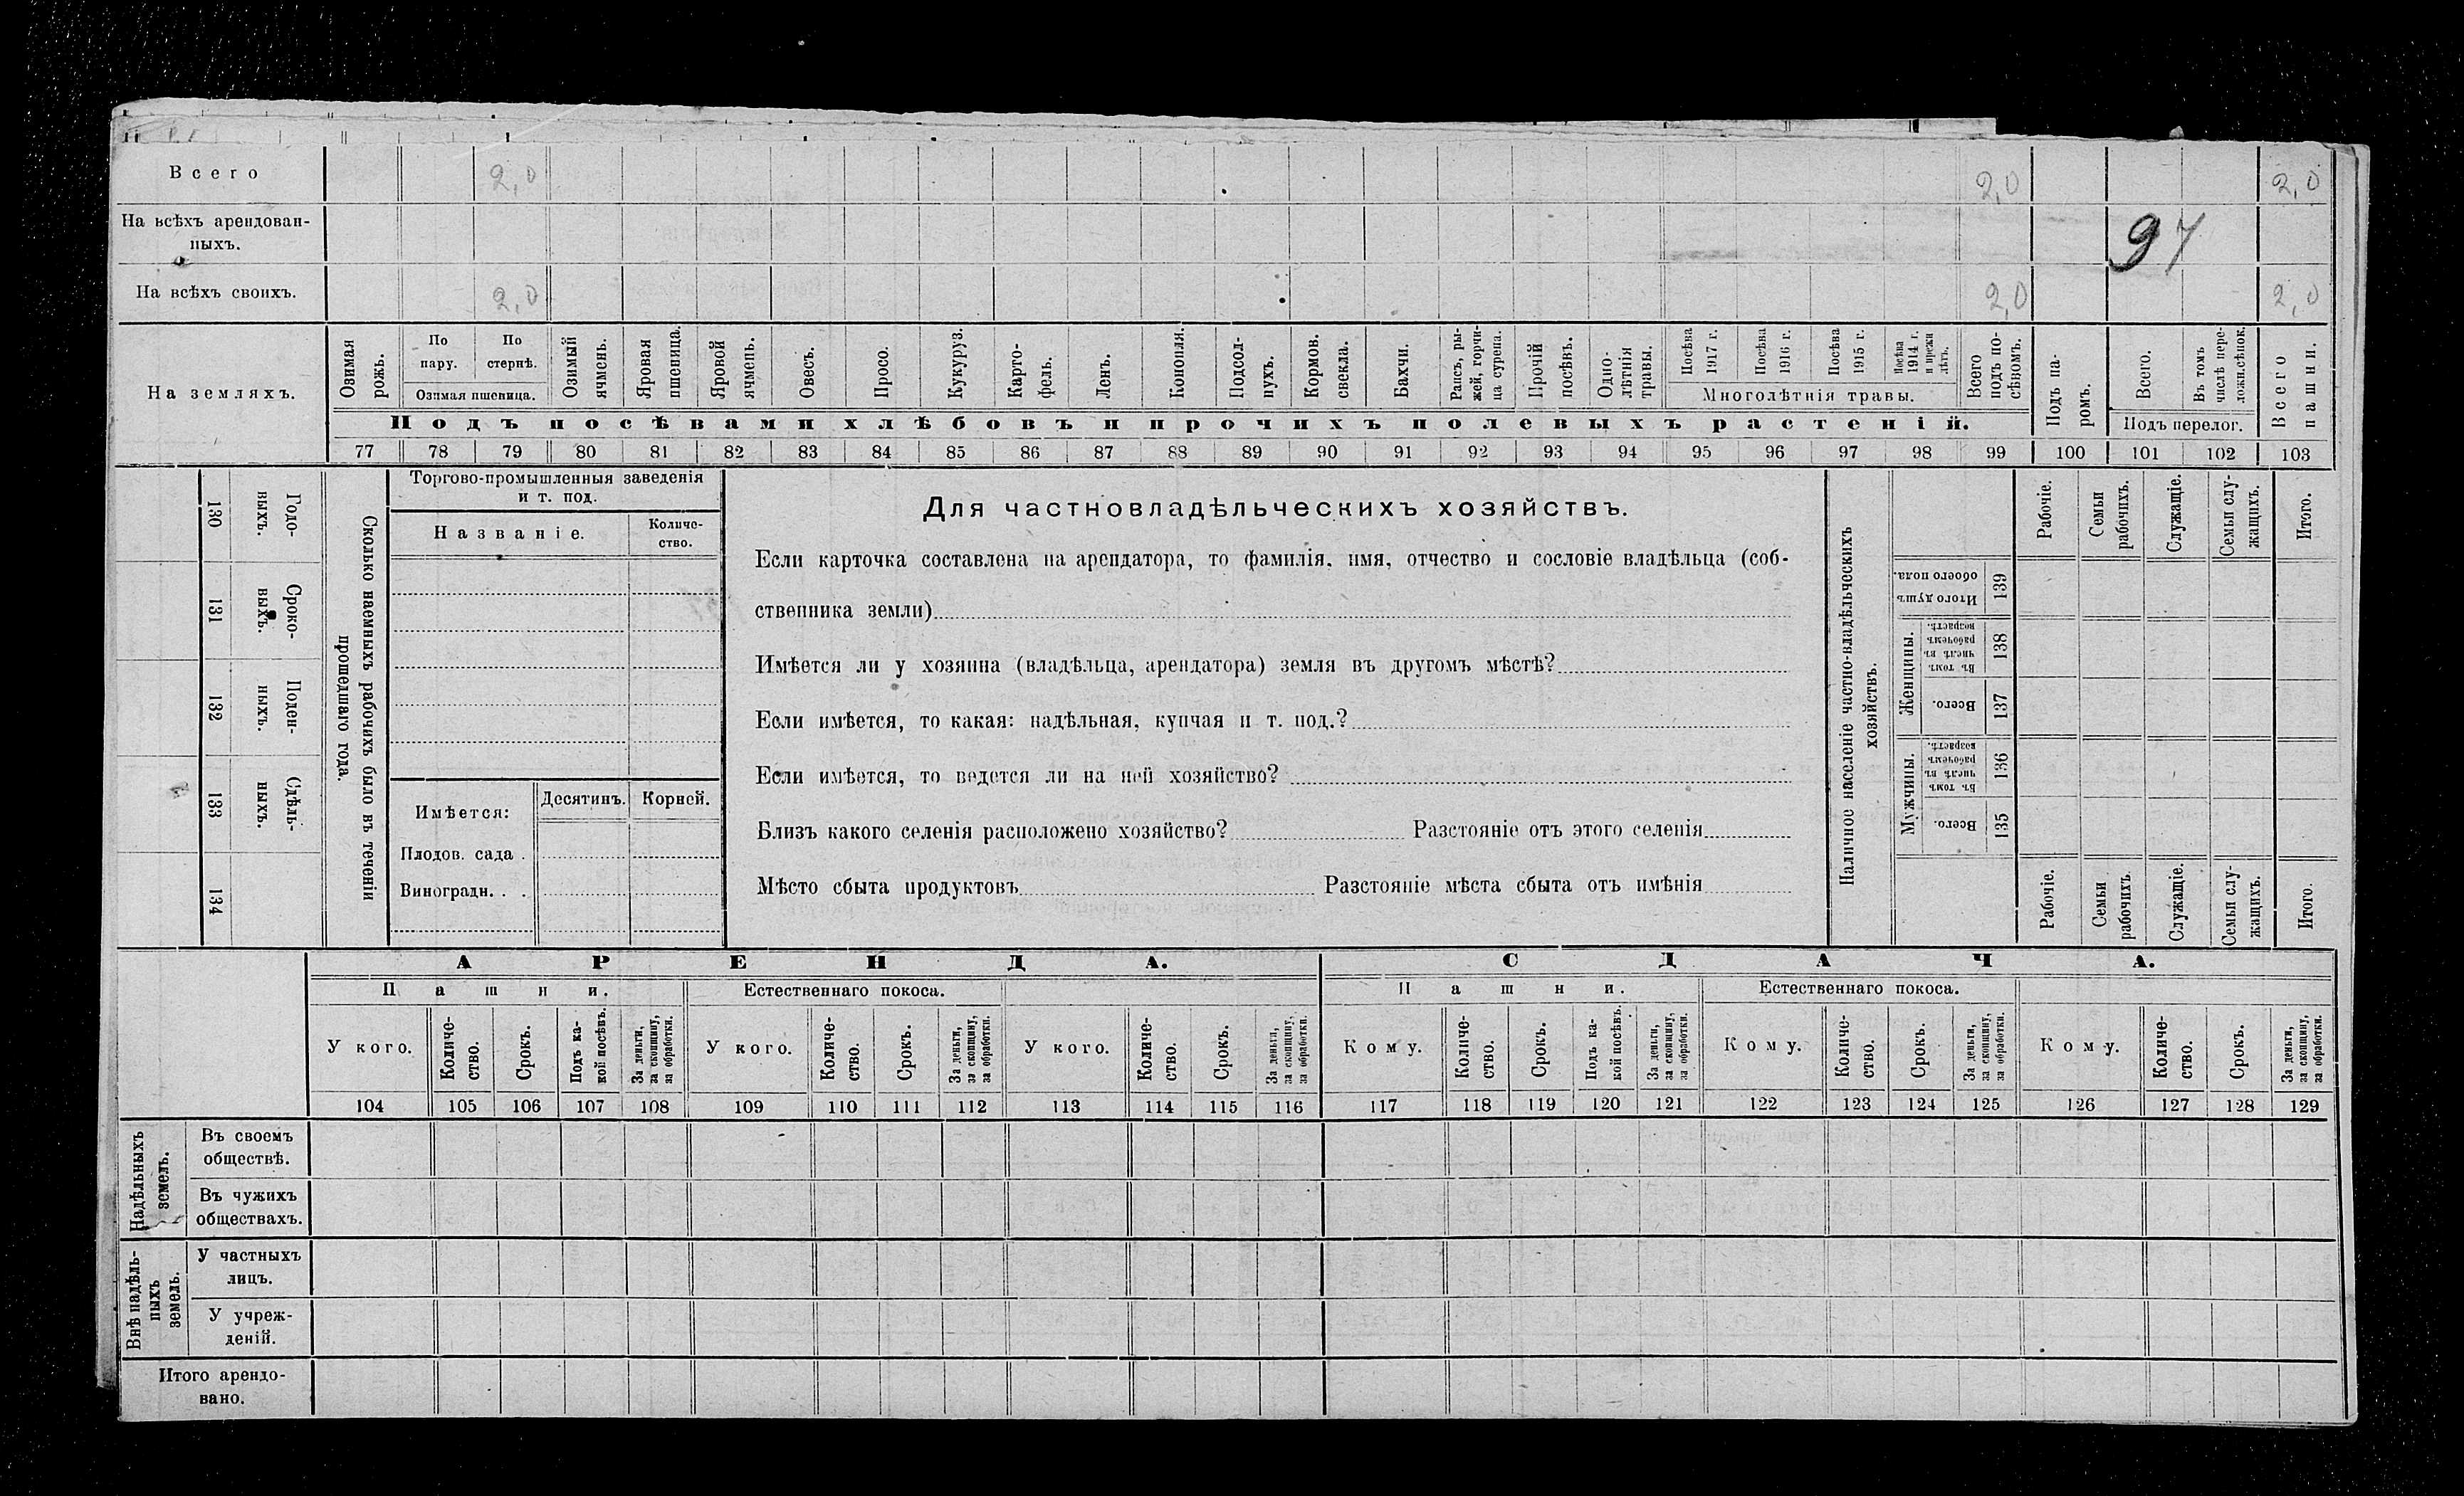 Всего 2,0 2,0 2,0
На всѣхъ арендован-
ныхъ.
97
На всѣхъ своихъ. 2,0 2,0 2,0
На земляхъ.
Озимая рожь.
По пару.
По стернѣ.
Озимая пшеница.
Озимый ячмень.
Яровая пшеница.
Яровой ячмень.
Овесъ.
Просо.
Кукуруз.
Карто-
фель.
Ленъ.
Конопля.
Подсол-
нухъ.
Кормов. свекла.
Бахчи.
Рапсъ, ры-
жей, горчи-
ца сурепа.
Прочій посѣвъ.
Одно-
лѣтнія травы.
Посѣва 1917 г.
Посѣва 1916 г.
Посѣва 1915 г.
Посѣва 1914 г. и прежн лѣтъ.
Многолѣтнія травы.
Всего подъ по-
сѣвомъ.
Подъ па-
ромъ.
Всего.
Въ томъ числѣ пере-
ложн.сѣнок.
Подъ перелог.
Всего пашни.
Подъ посѣвами хлѣбовъ и прочихъ полевыхъ растеній.
77 78 79 80 81 82 83 84 85 86 87 88 89 90 91 92 93 94 95 96 97 98 99 100 101 102 103
130
Годо-
выхъ.
131
Сроко-
выхъ.
132
Поден-
ныхъ.
133
Сдѣль-
ныхъ.
134
Сколько наемныхъ рабочихъ было въ теченіи
прошедшаго года.
Торгово-промышленныя заведенія
и т. под.
Названіе.
Количе-
ство.
Имѣется: Десятинъ. Корней.
Плодов. сада .
Виноградн. . .
Для частновладѣльческихъ хозяйствъ.
Если карточка составлена на арендатора, то фамилія, имя, отчество и сословіе владѣльца (соб-
ственника земли)
Имѣется ли у хозяина (владѣльца, арендатора) земля въ другомъ мѣстѣ?
Если имѣется, то какая: надѣльная, купчая и т. под.?
Если имѣется, то ведется ли на ней хозяйство?
Близъ какого селенія расположено хозяйство? Разстояніе отъ этого селенія
Мѣсто сбыта продуктовъ Разстояніе мѣста сбыта отъ имѣнія
Наличное населеніе частно-владѣльческихъ
хозяйствъ.
Рабочіе.
Семьи рабочихъ.
Служащіе.
Семьи слу-
жащихъ.
Итого.
Итого душъ
обоего пола.
139
Женщины.
Въ томъ числѣ въ рабочемъ возрастѣ.
138
Всего.
137
Мужчины.
Въ томъ числѣ въ рабочемъ возрастѣ.
136
Всего.
135
Рабочіе.
Семьи рабочихъ.
Служащіе.
Семьи слу-
жащихъ.
Итого.
АРЕНДА. СДАЧА.
Пашни. Естественнаго покоса. Пашни. Естественнаго покоса.
У кого.
Количе-
ство.
Срокъ.
Подъ ка-
кой посѣвъ.
За деньги,
за скопщину,
за обработки.
У кого.
Количе-
ство.
Срокъ.
За деньги,
за скопщину,
за обработки.
У кого.
Количе-
ство.
Срокъ.
За деньги,
за скопщину,
за обработки.
Кому.
Количе-
ство.
Срокъ.
Подъ ка-
кой посѣвъ.
За деньги,
за скопщину,
за обработки.
Кому.
Количе-
ство.
Срокъ.
За деньги,
за скопщину,
за обработки.
Кому.
Количе-
ство.
Срокъ.
За деньги,
за скопщину,
за обработки.
104 105 106 107 108 109 110 111 112 113 114 115 116 117 118 119 120 121 122 123 124 125 126 127 128 129
Надѣльныхъ
земель.
Въ своемъ
обществѣ.
Въ чужихъ
обществахъ.
Внѣ надѣль-
ныхъ
земель.
У частныхъ
лицъ.
У учреж-
деній.
Итого арендо-
вано.